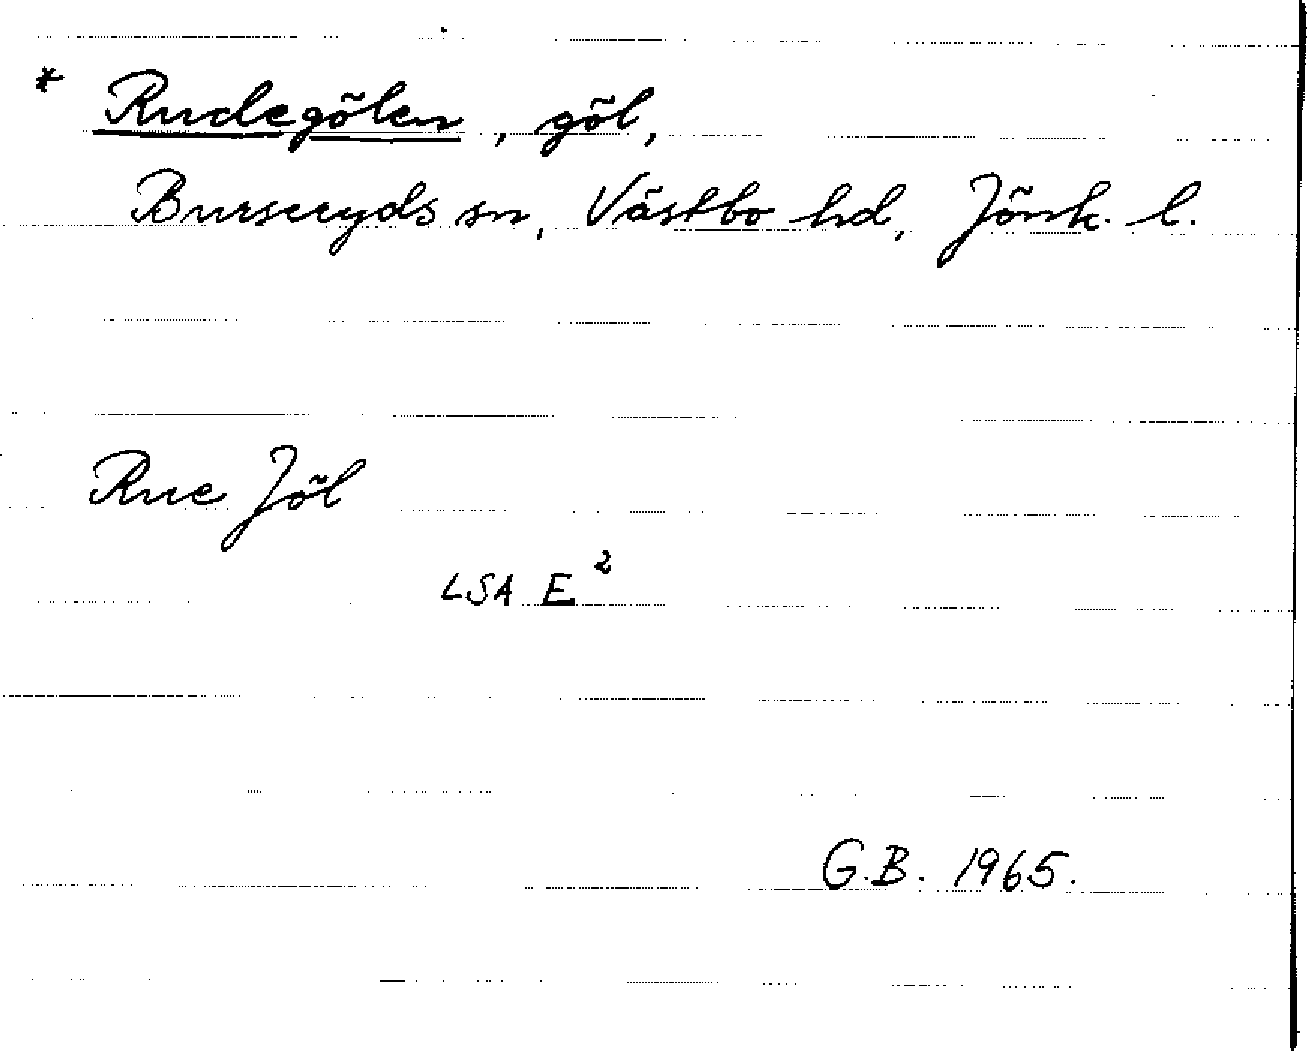 * Rudegölen, göl,
Burseryds sn, Västbo hd, Jönk. l.
Rue Jöl
LSA E²
G.B. 1965.